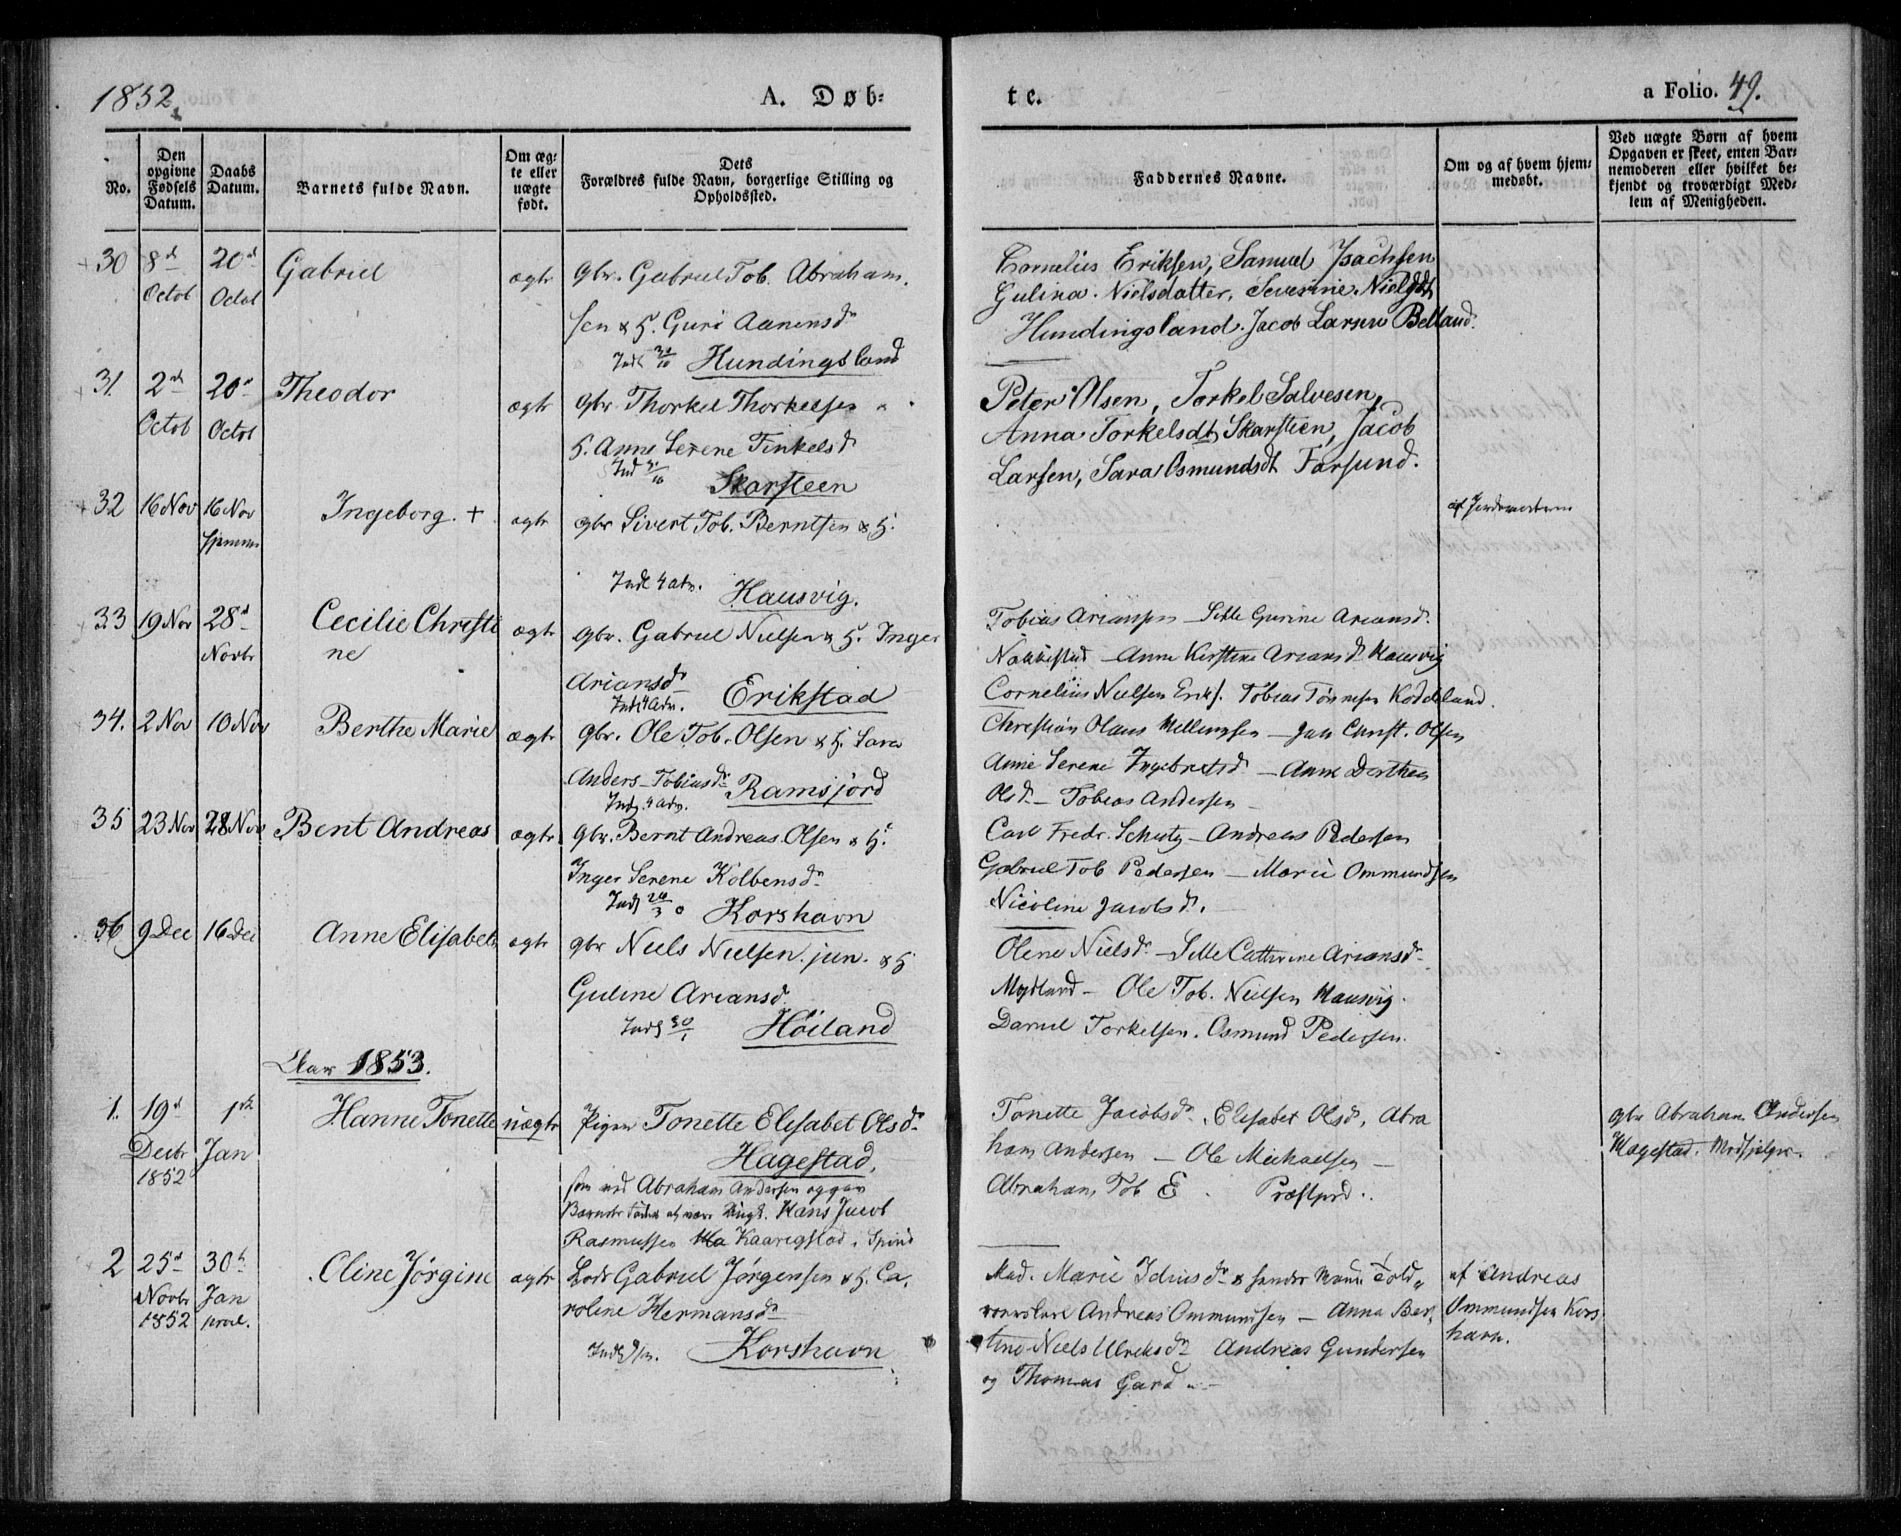 1852.
A. Døb-
te.
a Folio. 49.
No.
Den opgivne Fødsels Datum.
Daabs Datum.
Barnets fulde Navn.
Om æg-
te eller
uægte
født.
Dets
Forældres fulde Navn, borgerlige Stilling og
Opholdssted.
Faddernes Navne.
Om og af hvem hjem-
medøbt.
Ved uægte Børn af hvem
Opgaven er skeet, enten Bar-
nemoderen eller hvilket be-
kjendt og troværdigt Med-
lem af Menigheden.
30 8d Octob 20d Octob Gabriel ægte Gbr. Gabriel Tob. Abraham-
sen & H. Guri Aanensd
Hundingsland
Cornelius Eriksen, Samuel Isachsen
Gulina Nielsdatter, Severine Nielsdt
Hundingsland. Jacob Larsen Belland.
31. 2d Octob 20d Octob Theodor ægte Gbr Thorkel Thorkelsen
H. Anne Serene Tinkelsd
Skarsteen
Peter Olsen, Torkel Salvesen,
Anna Torkelsdt Skarsteen, Jacob
Larsen, Sara Osmundsdt Farsund.
32 16 Nov 16 Nov hjemme Ingeborg. + ægte gbr Sivert Tob. Berntsen & H.
Indl 4 adv. Hausvig.
af Jordemoderen
33 19 Nov 28d Novbr Cecilie Christi
ne
ægte Gbr. Gabriel Nielsen & H. Inger
Ariansd
Indl 4 Adv. Erikstad
Tobias Ariansen - Sille Gurine Ariansd.
Nakkestad - Anne Kirstine Ariansd Hausvig
Cornelius Nielsen Erikst. Tobias Tønnesen Koddeland.
34. 2 Nov 10 Nov Berthe Marie ægte Gbr. Ole Tob. Olsen & H. Sara
Anders-Tobiasd
Indl. 4 Adv. Ramsjord
Christian Olaus Willumsen - Jan Christ. Olsen
Anne Serene Ingebretsd - Anne Dorthea
Olsd - Tobias Andersen -
35 23 Nov 28 Nov Bent Andreas ægte Gbr. Bernt Andreas Olsen & H.
Inger Serene Kolbensd
Indl 20/3 Korshavn
Carl Fredr. Schutz - Andreas Pedersen
Gabriel Tob Pedersen - Marie Ommundsen
Nicoline Jacobsd.
36 9 Dec 16 Dec Anne Elisabet ægte gbr Niels Nielsen jun. & H
Guline Ariansd.
Indl 30/1 Høiland
Olene Nielsd - Sille Cathrine Ariansd
Mydland - Ole Tob. Nielsen Hausvig.
Daniel Torkelsen. Osmund Pedersen.
Aar 1853.
1. 19d Decbr 1852 1ste Jan Hanne Tonette uægte Pigen Tonette Elisabet Olsd
Hagestad,
som ved Abraham Andersen opgav
Barnets Fader at være Ungk. Hans Jacob
Rasmussen Kaaregstad i Spind
Tonette Jacobsd. Elisabet Olsd, Abra
ham Andersen - Ole Michaelsen -
Abraham Tob E. Præstgrd.
gbr Abraham Andersen
Hagestad. Medhjelper.
2 25d Novbr 1852 30te Jan Oline Jørgine ægte Lods Gabriel Jørgensen & H. Ca-
roline Hermansd
Korshavn
Mad. Marie Idriusd & hendes Mand Told-
roerskarl Andreas Ommundsen - Anna Ber-
tine Niels Ulriksd Andreas Gundersen
og Thomas Gard -
af Andreas
Ommundsen Kors
havn.